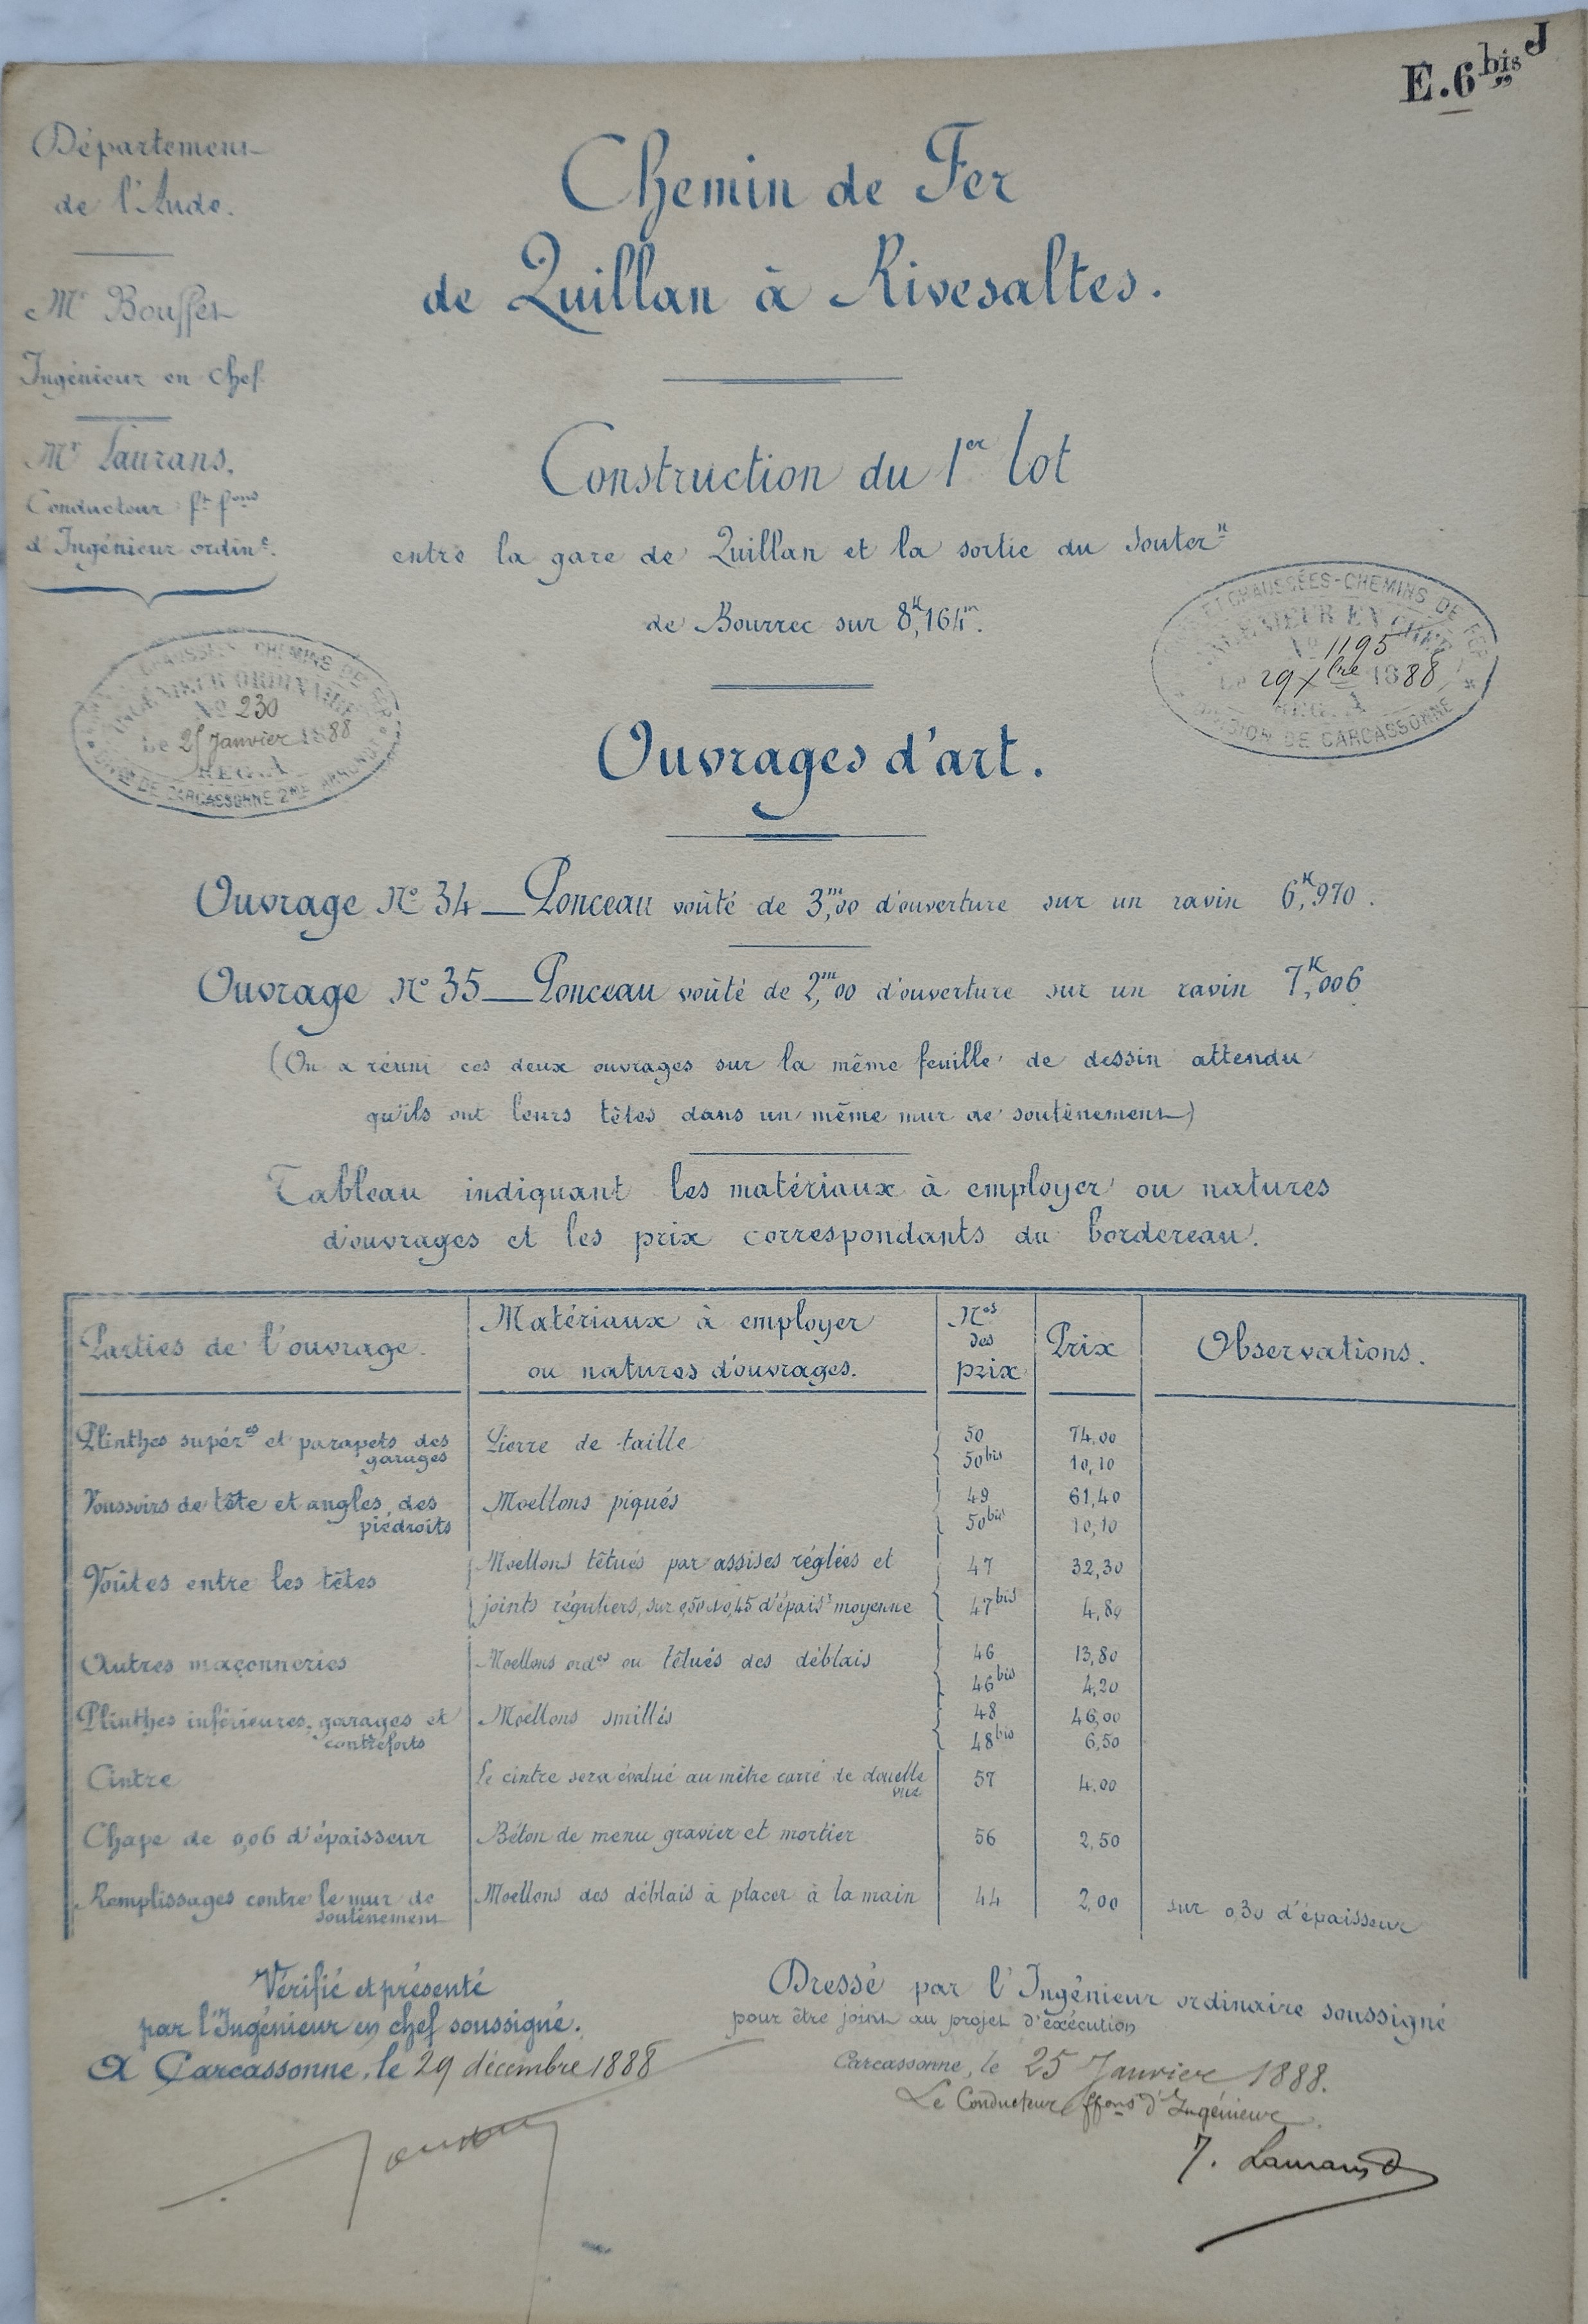 E.6bis J
Département
de l'Aude.
Mr Bouffet
Ingénieur en chef
Mr Laurans,
Conducteur ft fons
d'Ingénieur ordinre.
Chemin de Fer
de Quillan à Rivesaltes.
Construction du 1er lot
entre la gare de Quillan et la sortie du Soutern
de Bourrec sur 8k,164m.
ET CHAUSSÉES-CHEMINS DE FER
INGÉNIEUR EN CHEF
No 1195
Le 29 Xbre 1888
REG. A
DIVISION DE CARCASSONNE
CHAUSSÉES CHEMINS DE FER
INGÉNIEUR ORDINAIRE
No 230
Le 25 Janvier 1888
REG. A
DIVon DE CARCASSONNE 2ME ARRONDT
Ouvrages d'art.
Ouvrage No 34 — Ponceau voûté de 3m,00 d'ouverture sur un ravin 6K,970.
Ouvrage No 35 — Ponceau voûté de 2m,00 d'ouverture sur un ravin 7K,006
(On a réuni ces deux ouvrages sur la même feuille de dessin attendu
qu'ils ont leurs têtes dans un même mur de soutènement)
Tableau indiquant les matériaux à employer ou natures
d'ouvrages et les prix correspondants du bordereau.
Parties de l'ouvrage. Matériaux à employer ou natures d'ouvrages. Nos des prix Prix Observations.
Plinthes supéres et parapets des garages Pierre de taille 50 74,00
50bis 10,10
Voussoirs de tête et angles des piédroits Moellons piqués 49 61,40
50bis 10,10
Voûtes entre les têtes Moellons têtués par assises réglées et 47 32,30
joints réguliers, sur 0,50 à 0,45 d'épaisr moyenne 47bis 4,80
Autres maçonneries Moellons ordes ou têtués des déblais 46 13,80
46bis 4,20
Plinthes inférieures, garages et contreforts Moellons smillés 48 46,00
48bis 6,50
Cintre Le cintre sera évalué au mètre carré de douelle vue 57 4,00
Chape de 0,06 d'épaisseur Béton de menu gravier et mortier 56 2,50
Remplissages contre le mur de soutènement Moellons des déblais à placer à la main 44 2,00 sur 0,30 d'épaisseur
Vérifié et présenté
par l'Ingénieur en chef soussigné.
A Carcassonne, le 29 décembre 1888
Dressé par l'Ingénieur ordinaire soussigné
pour être joint au projet d'exécution
Carcassonne, le 25 Janvier 1888.
Le Conducteur ffons d'Ingénieur
J. Laurans